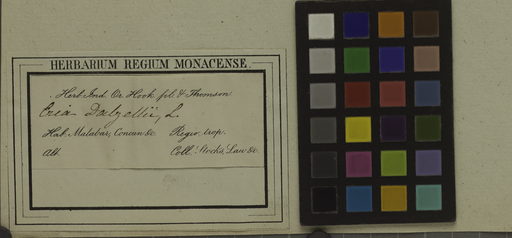 HERBARIUM REGIUM MONACENSE.
Herb. Ind. Or. Hook. fil. & Thomson
Eria Dalzellii, L.
Hab. Malabar, Concan &c. Regio trop.
Alt. Coll. Stocks, Law &c.